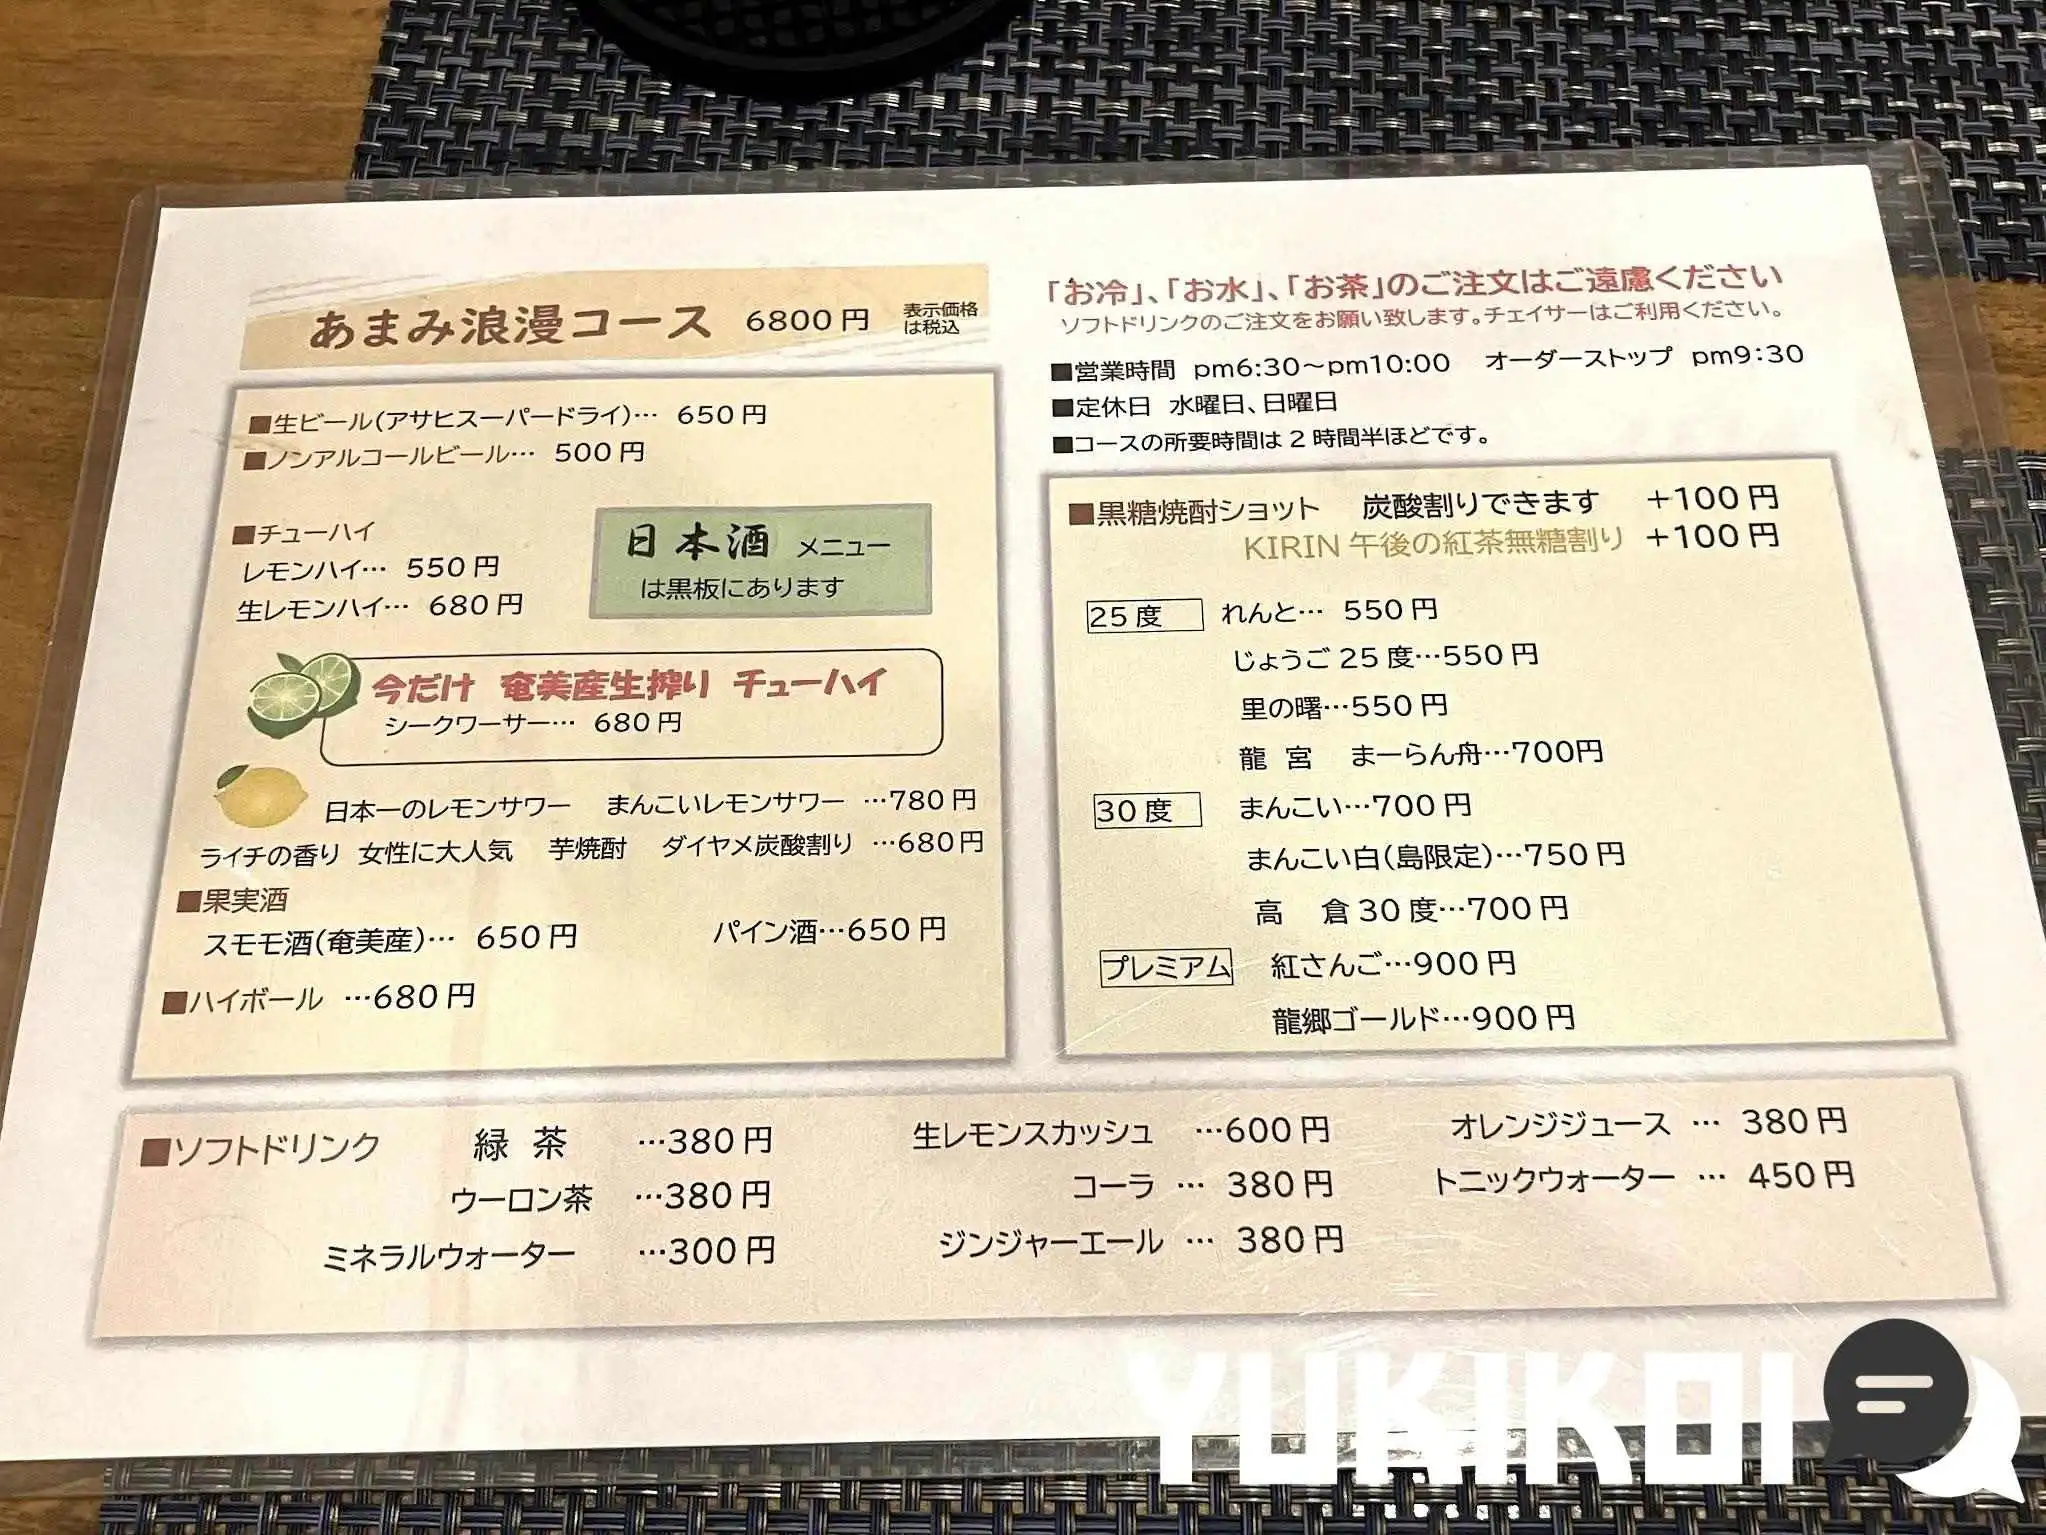 あまみ浪漫コース 6800円 表示価格
は税込
■生ビール(アサヒスーパードライ)… 650円
■ノンアルコールビール… 500円
■チューハイ
レモンハイ… 550円
生レモンハイ… 680円
日本酒 メニュー
は黒板にあります
今だけ 奄美産生搾り チューハイ
シークワーサー… 680円
日本一のレモンサワー まんこいレモンサワー …780円
ライチの香り 女性に大人気 芋焼酎 ダイヤメ炭酸割り …680円
■果実酒
スモモ酒(奄美産)… 650円 パイン酒…650円
■ハイボール …680円
「お冷」、「お水」、「お茶」のご注文はご遠慮ください
ソフトドリンクのご注文をお願い致します。チェイサーはご利用ください。
■営業時間 pm6:30～pm10:00 オーダーストップ pm9:30
■定休日 水曜日、日曜日
■コースの所要時間は2時間半ほどです。
■黒糖焼酎ショット 炭酸割りできます +100円
KIRIN午後の紅茶無糖割り +100円
25度 れんと… 550円
じょうご25度…550円
里の曙…550円
龍宮 まーらん舟…700円
30度 まんこい…700円
まんこい白(島限定)…750円
高倉30度…700円
プレミアム 紅さんご…900円
龍郷ゴールド…900円
■ソフトドリンク 緑茶 …380円 生レモンスカッシュ …600円 オレンジジュース … 380円
ウーロン茶 …380円 コーラ … 380円 トニックウォーター … 450円
ミネラルウォーター …300円 ジンジャーエール … 380円
YUKIKOI